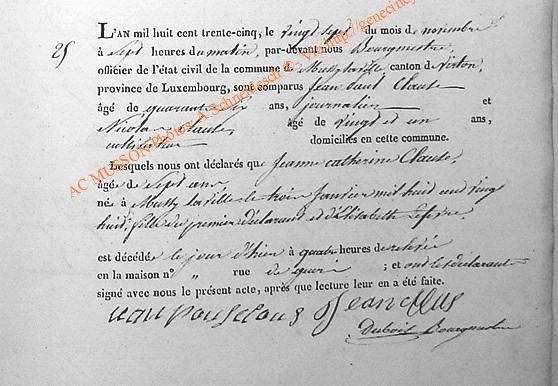 L'AN mil huit cent trente-cinq, le vingt sept du mois de novembre
25 à sept heures du matin, par-devant nous Bourgmestre
officier de l'état civil de la commune de Mussy la ville canton de virton,
province de Luxembourg, sont comparus jean paul Clause
âgé de quarante six ans, journalier et
Nicolas Clause, âgé de vingt et un ans,
cultivateur domiciliés en cette commune.
Lesquels nous ont déclarés que Jeanne catherine Clause,
âgée de Sept ans,
né à Mussy la ville le trois Janvier mil huit cent vingt
huit, fille du premier déclarant et d'Elisabeth Lefevre
est décédés le jour d'hier à quatre heures de relevée
en la maison n° " rue de ; et ont les déclarants
signé avec nous le présent acte, après que lecture leur en a été faite.
Dubois Bourgmestre
AC MUSSON Photos: A.Schneidesch © V.G. http://geneciney